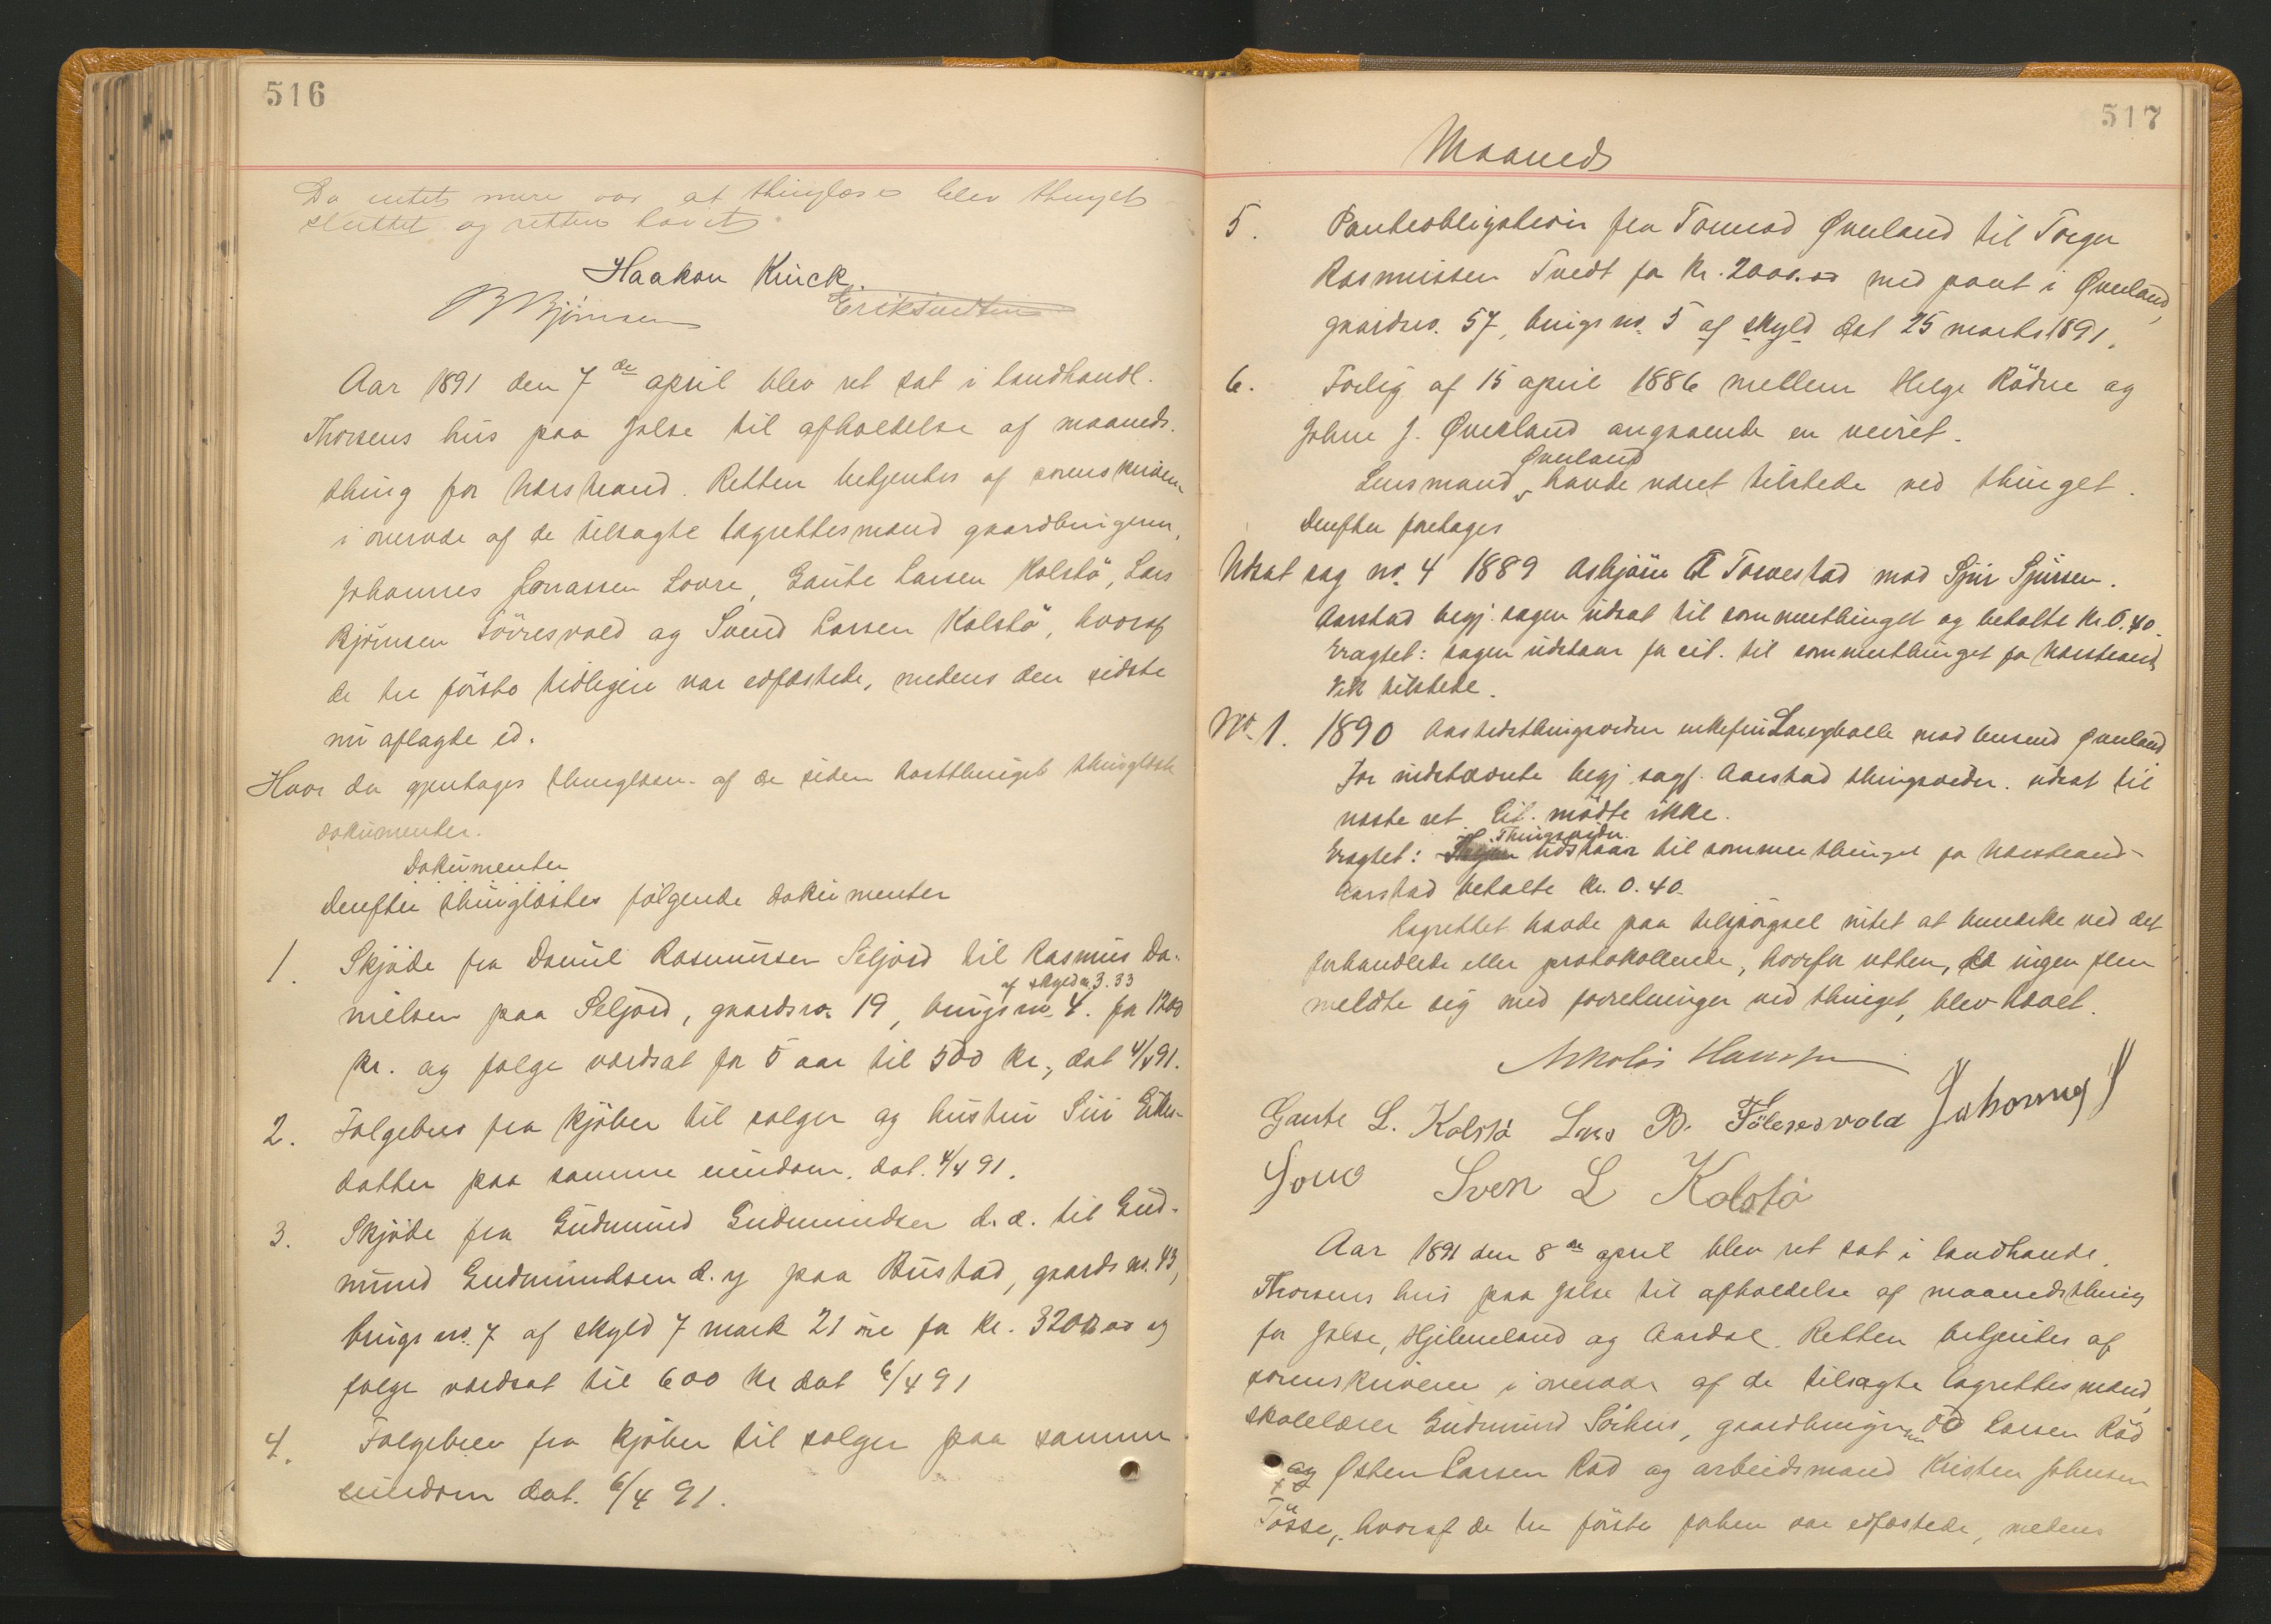 516
Da intet mere var at thinglæses blev thinget
sluttet og retten hævet
Haakon Kinck
B Bjørnsen Erik
Aar 1891 den 7de april blev ret sat i landhandl.
Thorsens hus paa Jelse til afholdelse af maaneds-
thing for Nærstrand. Retten betjentes af sorenskriveren
i overvær af de tilsagte lagrettesmænd gaardbrugerne
Johannes Jonassen Lovre, Gaute Larsen Kolstö, Lars
Bjørnsen Tövresvold og Svend Larsen Kolstö, hvoraf
de tre förste tidligere var edfæstede, medens den sidste
nu aflagde ed.
Hvor da gjentages thinglæsn. af de siden hösttthinget thinglæste
dokumenter.
Dokumenter
Derefter thinglæstes fölgende dokumenter
1. Skjöde fra Daniel Rasmussen Seljord til Rasmus Da-
af skyld m. 3.33
nielsen paa Seljord, gaardsno. 19, brugsno. 4. for 1200
kr. og folge værdsat for 5 aar til 500 kr., dat 4/4 91.
2. Folgebrev fra kjöber til sælger og hustru Siri Eiks-
datter paa samme eiendom. dat. 4/4 91.
3. Skjöde fra Gudmund Gudmundsen d. æ. til Gud-
mund Gudmundsen d. y paa Bustad, gaards no. 43,
brugs no. 7 af skyld 7 mark 21 öre for kr. 3200.00 og
folge værdsat til 600 kr dat 6/4 91
4. Folgebrev fra kjöber til sælger paa samme
eiendom dat. 6/4 91.
517
Maaneds
5. Panteobligation fra Tormod Øverland til Torger
Rasmussen Tvedt for kr. 2000.00 med pant i Øverland,
gaardsno. 57, brugs no. 5 af skyld dat 25 marts 1891.
6. Forlig af 15 april 1886 mellem Helge Rödne og
Johne J. Øverland angaaende en veiret.
Øverland
Lensmand havde været tilstede ved thinget.
Derefter foretages
Udsat sag no. 4 1889 Asbjörn T Torvestad mod Sjur Sjursen.
Aarstad begj. sagen udsat til sommerthinget og betalte kr. 0.40.
Eragtet: sagen udstaar for cit. til sommerthinget for Nærstrand
Vek tilstede.
No. 1. 1890 Aastedsthingsvidne enkefru mod Øverland
For indstævnte begj. sagf. Aarstad thingsvidn. udsat til
næste ret. Cit. mödte ikke.
Thingsvidn.
Eragtet: udstaar til sommerthinget for Nærstrand
Aarstad betalte kr. 0.40.
Lagrettet havde paa tilspörgsel intet at bemærke ved det
forhandlede eller protokollerede, hvorfor retten, da ingen flere
meldte sig med forretninger ved thinget, blev hævet.
Nikolai Hanssen
Gaute L. Kolstö Lars B. Tölresvold Johannes J
Lovre Sven L Kolstö
Aar 1891 den 8de april blev ret sat i landhandl.
Thorsens hus paa Jelse til afholdelse af maanedsthing
for Jelse, Hjelmeland og Aardal. Retten betjentes af
sorenskriveren i overvær af de tilsagte lagrettesmænd
skolelærer Gudmund Sörhus, gaardbrugerne Od Larsen Rød
og Østen Larsen Rød og arbeidsmand Kristen Johnsen
Tösse, hvoraf de tre förste forhen var edfæstede, medens